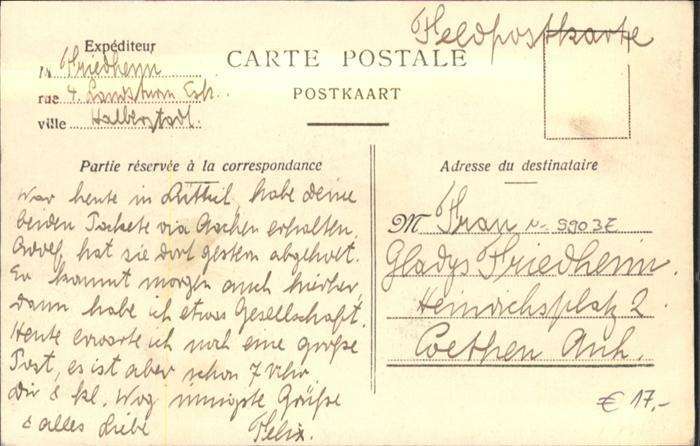 Feldpostkarte
Expéditeur
CARTE POSTALE
POSTKAART
M Friedheim
rue 4. Landsturm Esk.
ville Halberstadt.
Partie réservée à la correspondance
War heute in habe deine
beiden Packete via Aachen erhalten.
Adolf, hat sie dort gestern abgeholt.
Er kommt morgen auch hierher,
dann habe ich etwas Gesellschaft.
Heute erwarte ich noch eine große
Post, es ist aber schon 7 Uhr
Dir & kl. innigste Grüße
& alles Liebe Felix.
Adresse du destinataire
M Frau N- S903Z
Gladys Friedheim.
Heinrichsplatz 2.
Coethen Anh.
€ 17,-